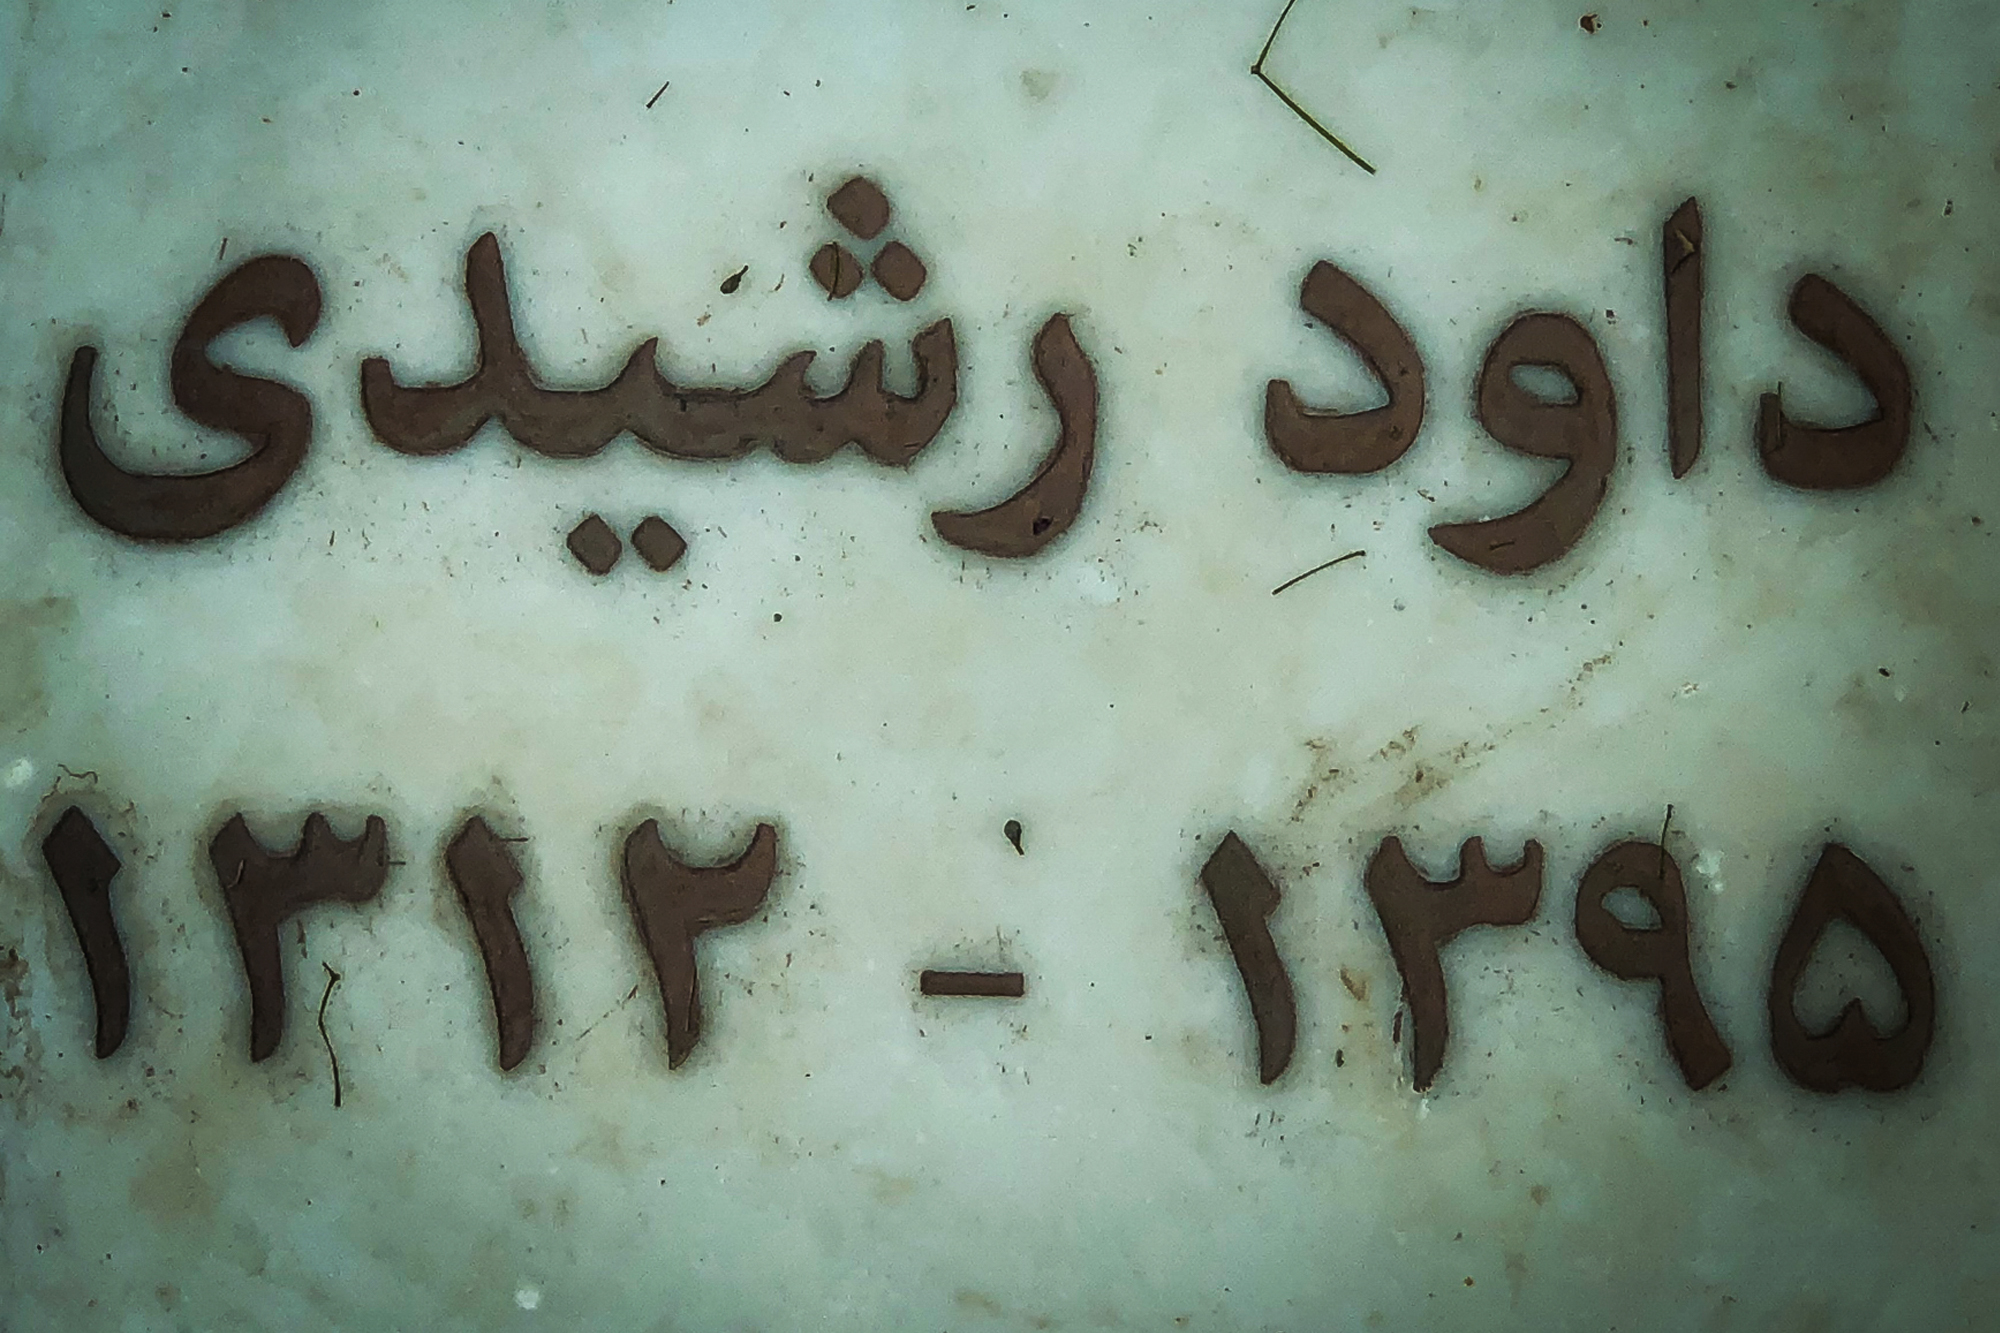 داود رشیدی
۱۳۱۲ - ۱۳۹۵